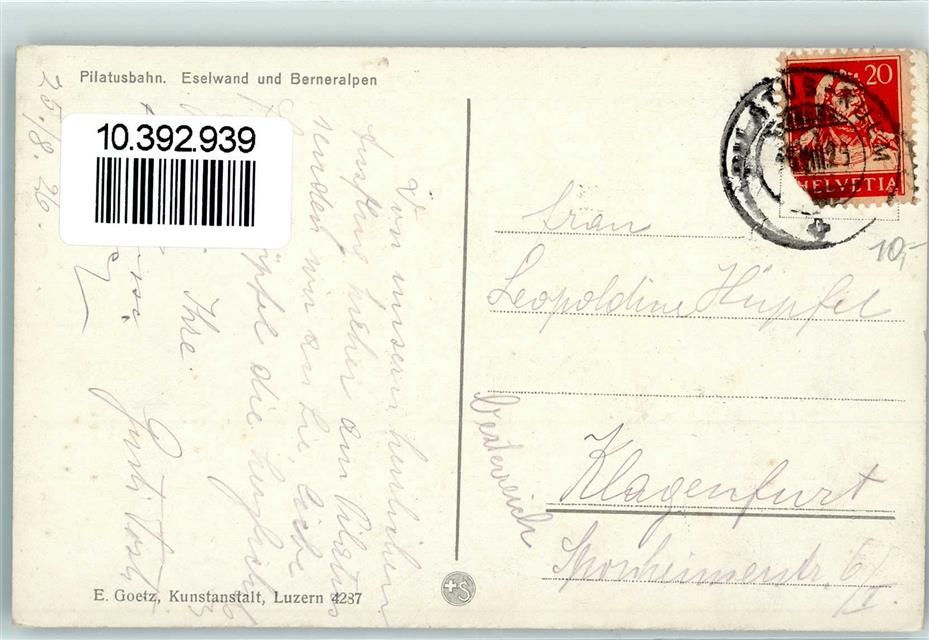 Pilatusbahn. Eselwand und Berneralpen
25./8. 26.
10.392.939
Von unserm herrlichen
Ausflug hieher am Pilatus
senden wir an Sie liebe
die herzlichst
Ihre
20
HELVETIA
PILATUS
10,-
Frau
Leopoldine Hüpfel
Klagenfurt
Oesterreich
Sponheimerstr. 6/I.
E. Goetz, Kunstanstalt, Luzern 4237
S